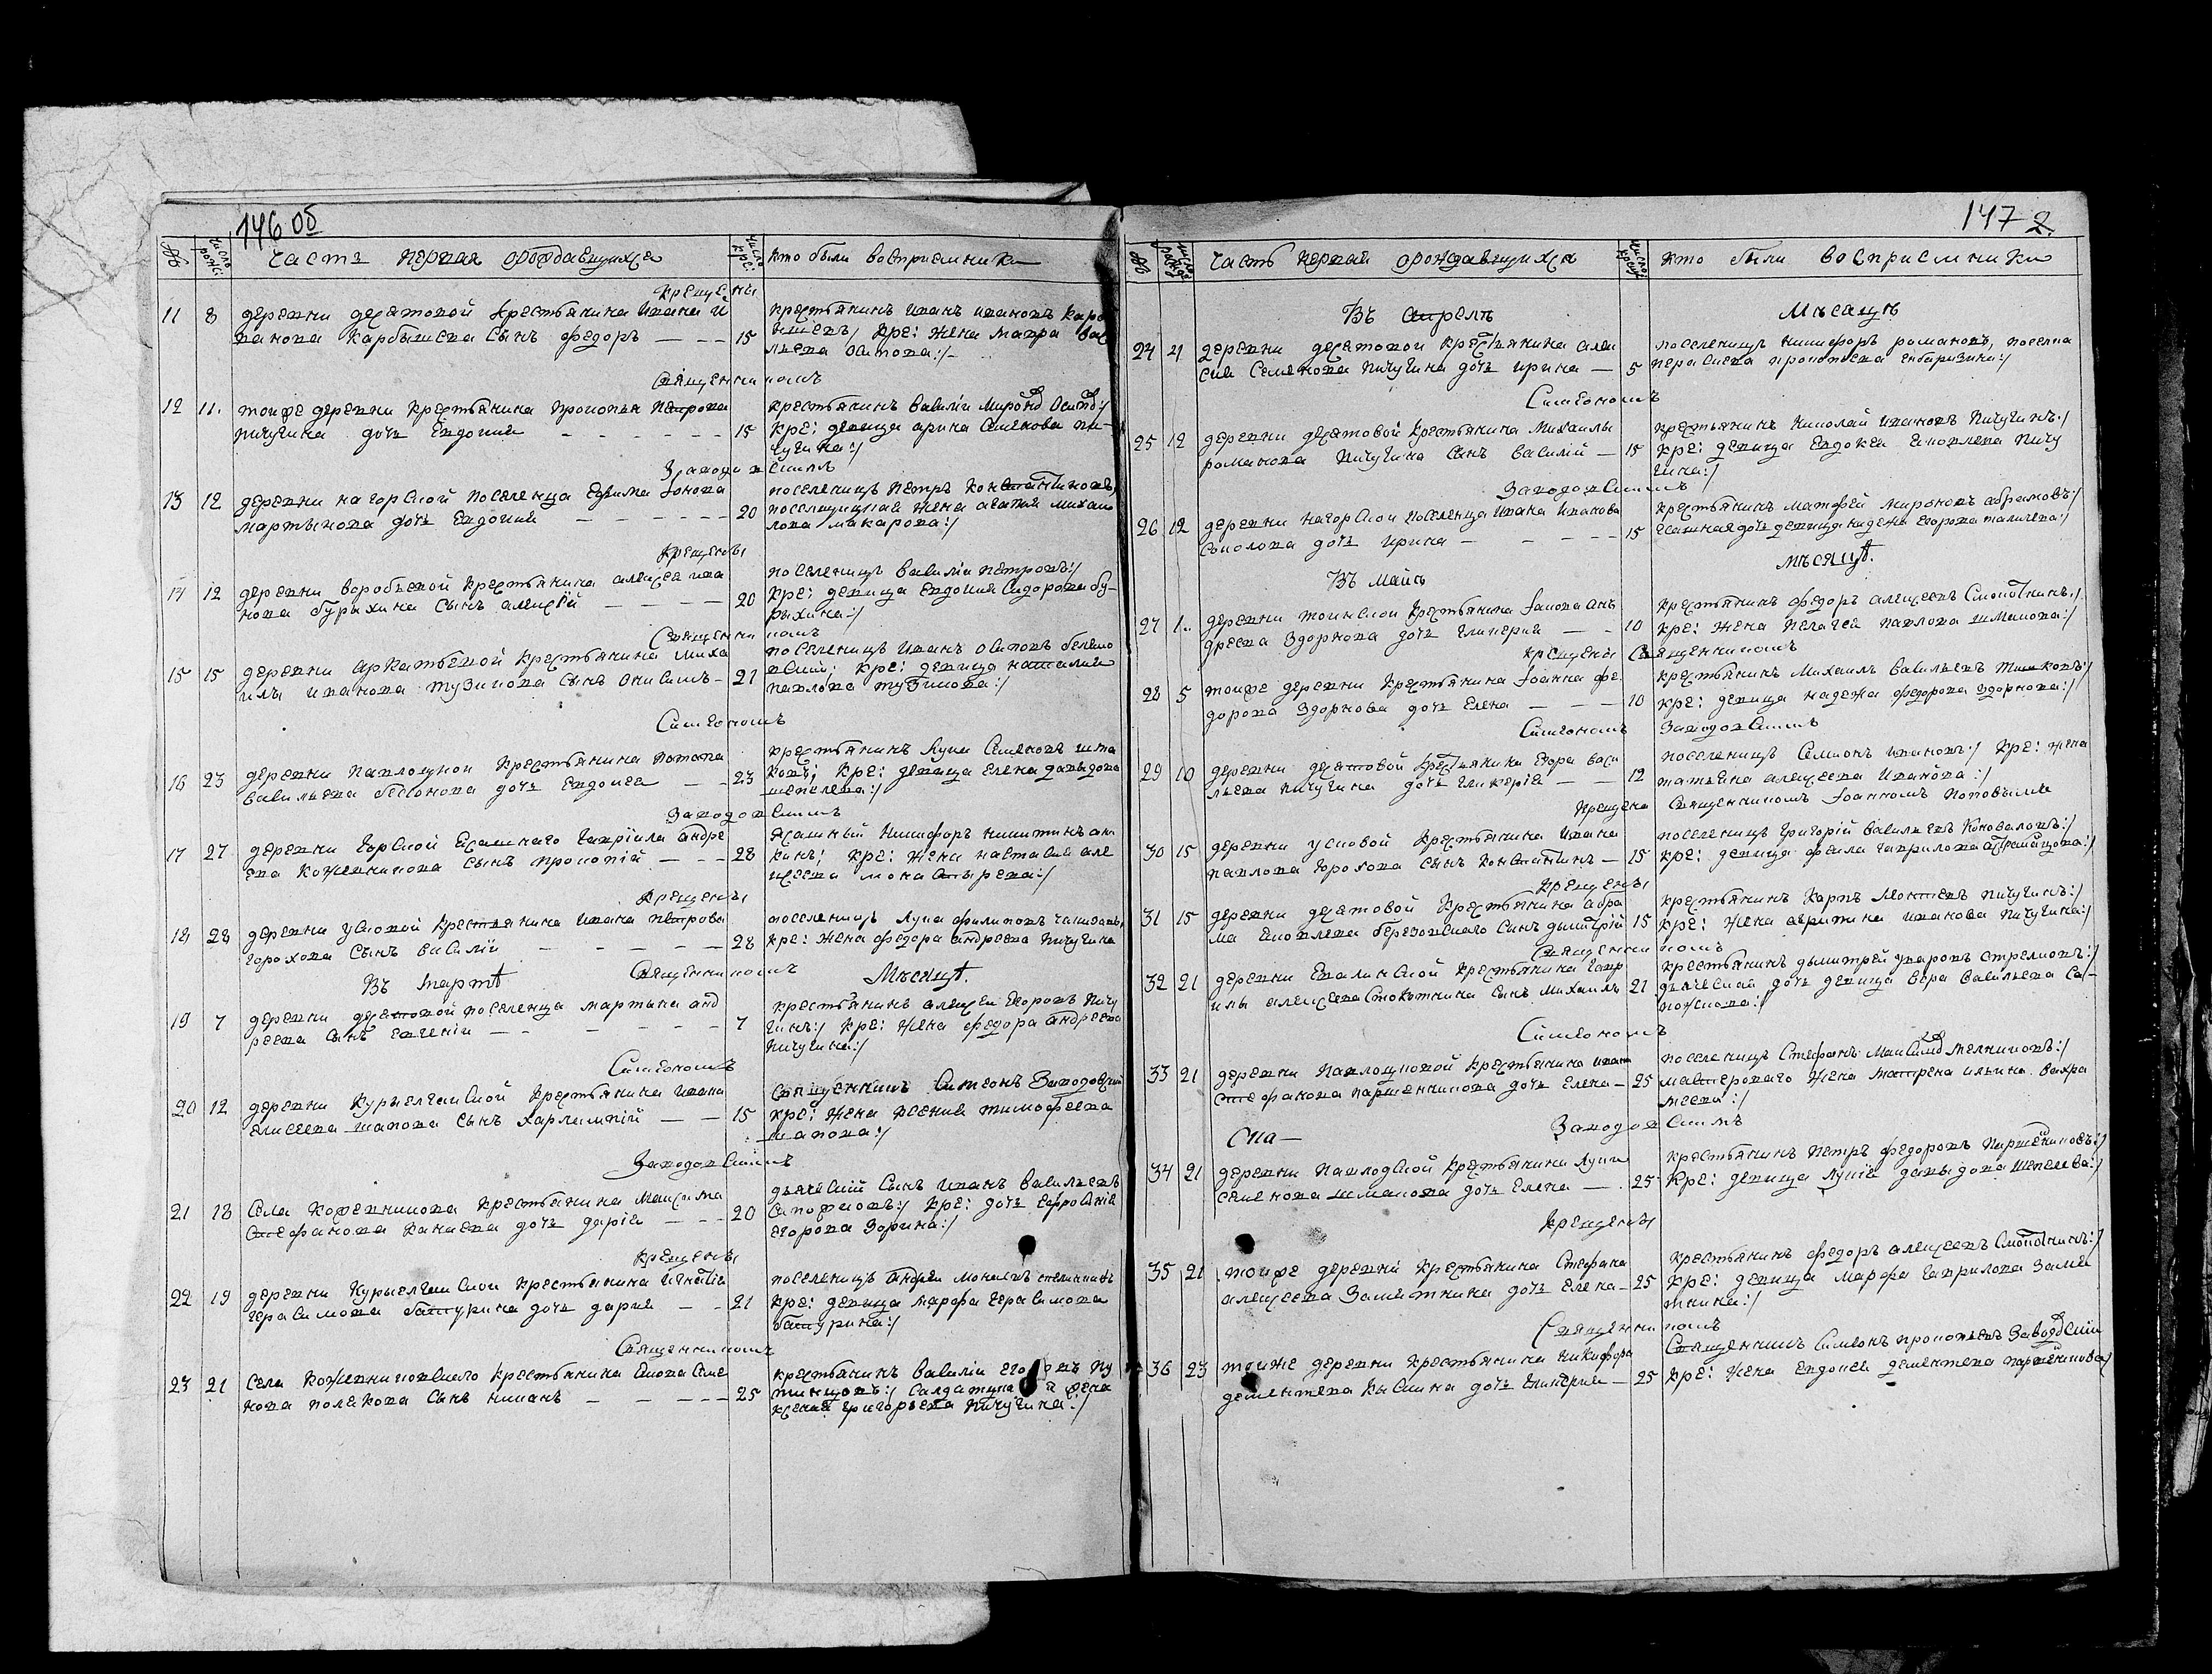 146 об
№
число рожд:
Часть первая о рождающихся
число кре:
кто были восприемники
крещены
11 8 деревни десятовой крестьянина Ивана И
ванова Карбышева сынъ Федоръ — — — 15
крестьянинъ Иванъ Ивановъ Карб
ышевъ; кре: жена Мавра Вас
льева Осипова:/
Священникомъ
12 11. тойже деревни крестьянина Прокопья Петрова
Пичугина дочь Евдокия — — — 15
крестьянинъ Василiи Миронов Осипов:/
кре: девица Арина Семенова Пи-
чугина:/
Заводовскимъ
13 12 деревни нагорской поселенца Ефима Iонова
Мартынова дочь Евдокия — — — 20
поселенецъ Петръ Константиновъ,
поселенецкая жена Агафия Михаи
лова Макарова:/
крещены
14 12 деревни Воробьевой крестьянина Алексея Ива
нова Бурыхина сынъ Алексiй — — — 20
поселенецъ Василiи Петровъ:/
кре: девица Евдокия Сидорова Бу-
рыхина:/
Священникомъ
15 15 деревни Аркатьевой крестьянина Миха
илы Иванова Тузикова сынъ Онисимъ — 21
поселенецъ Иванъ Осиповъ
кре: девица Наталия
Павлова Тузикова:/
Симеономъ
16 23 деревни Павлоцкой крестьянина Потапа
Васильева Бесонова дочь Евдокея — — 23
крестьянинъ Лука Семеновъ Шма
ковъ; кре: девица Елена Давыдова
Шепелева:/
Заводовскимъ
17 27 деревни Горской Ясашнаго Гаврiила Андре
ева Кожевникова сынъ Прокопiй — — 28
Ясашный Никифоръ Никитинъ
кре: жена Настасия Але
ксеева Монастырева:/
крещены
18 28 деревни Усковой крестьянина Ивана Петрова
Горохова сынъ Василiй — — — 28
поселенецъ Лука Филиповъ
кре: жена Федора Андреева Пичугина
Священникомъ
Въ Мартѣ Мѣсяцѣ.
19 7 деревни десятовой поселенца Мартына Анд
реева сынъ Евгенiи — — — 7
крестьянинъ Алексеи Егоровъ Пичу
гинъ:/ кре: жена Федора Андреева
Пичугина:/
Симеономъ
20 12 деревни Курьегганской крестьянина Ивана
Елисеева Шапова сынъ Харлампiй — — 15
Священникъ Симеонъ Заводовский
кре: жена Ксения Тимофеева
Шапова:/
Заводовскимъ
21 18 села Кожевникова крестьянина Максима
Стефанова Канаева дочь Дарiя — — 20
дьяческiй сынъ Иванъ Васильевъ
Сапожковъ:/ кре: дочь Ефросиния
Егорова Зорина:/
крещены
22 19 деревни Курьегганской крестьянина Игнатiя
Герасимова Батурина дочь Дария — — 21
поселенецъ Андреи
кре: девица Марфа Герасимова
Батурина:/
Священникомъ
23 21 села Кожевниковского крестьянина Якова Семе
нова Полякова сынъ Никанъ — — — 25
крестьянинъ Василiи Егоровъ Пу
Салдатка жена
Ксения Григорьева Пичугина:/
147 2.
№
число рожд
Часть первая о рождающихся
число крещ:
кто были восприемники
Въ Апрелѣ Мѣсяцѣ
24 21 деревни десятовой крестьянина Алек
сия Семенова Пичугина дочь Ирина — 5
поселенецъ Никифоръ Романовъ,
Симеономъ
25 12 деревни десятовой крестьянина Михаилы
Романова Пичугина сынъ Василiй — 15
крестьянинъ Николай Ивановъ Пичугинъ:/
кре: девица Евдокея Яковлева Пичу
гина:/
Заводовскимъ
26 12 деревни нагорской поселенца Ивана Иванова
Соколова дочь Ирина — — — 15
крестьянинъ Матфей Мироновъ Абрамовъ:/
Ясашная дочь девица Надежа Егорова
Въ Маiѣ Мѣсяцѣ.
27 1. деревни крестьянина Iакова Анъ
дреева Здорнова дочь Гликерия — — 10
крестьянинъ Федоръ Алексеевъ
кре: жена Пелагея Павлова Шмакова:/
крещены Священникомъ
28 5 тойже деревни крестьянина Iоанна Фе
дорова Здорнова дочь Елена — — — 10
крестьянинъ Михаилъ Васильевъ
кре: девица Надежа Федорова Здорнова:/
Симеономъ Заводовскимъ
29 10 деревни десятовой крестьянина Егора Васи
льева Пичугина дочь Гликерiя — — 12
поселенецъ Симионъ Ивановъ:/ кре: жена
Татьяна Алексеева Иванова:/
крещена Священникомъ Iоанномъ Поповымъ
30 15 деревни Усковой крестьянина Ивана
Павлова Горохова сынъ Константинъ — 15
поселенецъ Григорiй Васильевъ Коноваловъ:/
кре: девица Фекла Гаврилова
крещены
31 15 деревни десятовой крестьянина Абра
ма Яковлева Березовскаго сынъ Дымитрiй 15
крестьянинъ Карпъ Пичугинъ:/
кре: жена Агрипина Иванова Пичугина:/
Священникомъ
32 21 деревни Екимской крестьянина Гавр
илы Алексеева сынъ Михаилъ 21
крестьянинъ Дымитрей Уваровъ Стрелковъ:/
дьяческая дочь девица Вера Васильева Са-
пожкова:/
Симеономъ
33 21 деревни Павлоцковой крестьянина Ивана
Стефанова Паршенникова дочь Елена — 25
поселенецъ Стефанъ Максимов Мелниковъ:/
мастероваго жена Матрена Ильина Вахра
меева:/
Заводовскимъ
Она —
34 21 деревни Павлодской крестьянина Луки
Семенова Шмакова дочь Елена — . 25
крестьянинъ Петръ Федоровъ Паршенниковъ:/
кре: девица Лукiя Давыдова Шепелева:/
крещены
35 21 тойже деревни крестьянина Стефана
Алексеева Замятнина дочь Елена — 25
крестьянинъ Федоръ Алексеевъ
кре: девица Марфа Гаврилова Замя
тнина:/
Священникомъ
36 23 тойже деревни крестьянина Никифора
Дементева Кыскина дочь Гликерия — 25
Священникъ Симеонъ Прокопьевъ Заводовский
кре: жена Евдокея Дементева Паршенникова:/